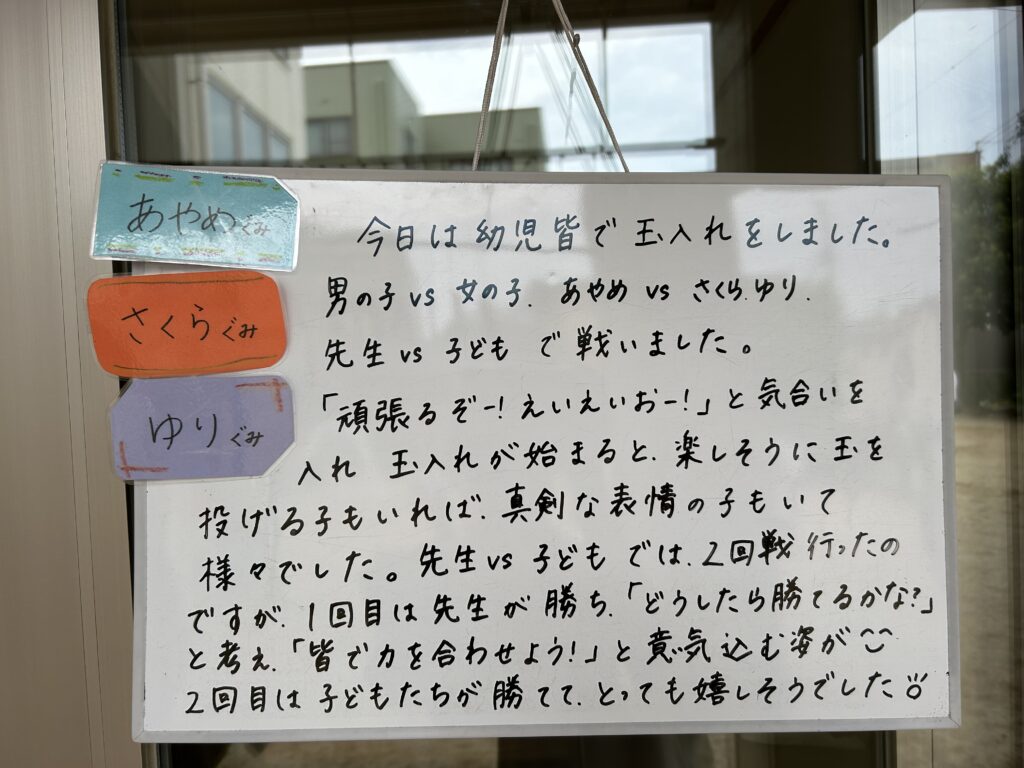 あやめぐみ
さくらぐみ
ゆりぐみ
今日は幼児皆で玉入れをしました。
男の子vs女の子、あやめvsさくら、ゆり、
先生vs子どもで戦いました。
「頑張るぞー!えいえいおー!」と気合いを
入れ 玉入れが始まると、楽しそうに玉を
投げる子もいれば、真剣な表情の子もいて
様々でした。先生vs子どもでは、2回戦行ったの
ですが、1回目は先生が勝ち、「どうしたら勝てるかな?」
と考え、「皆で力を合わせよう!」と意気込む姿が
2回目は子どもたちが勝てて、とっても嬉しそうでした